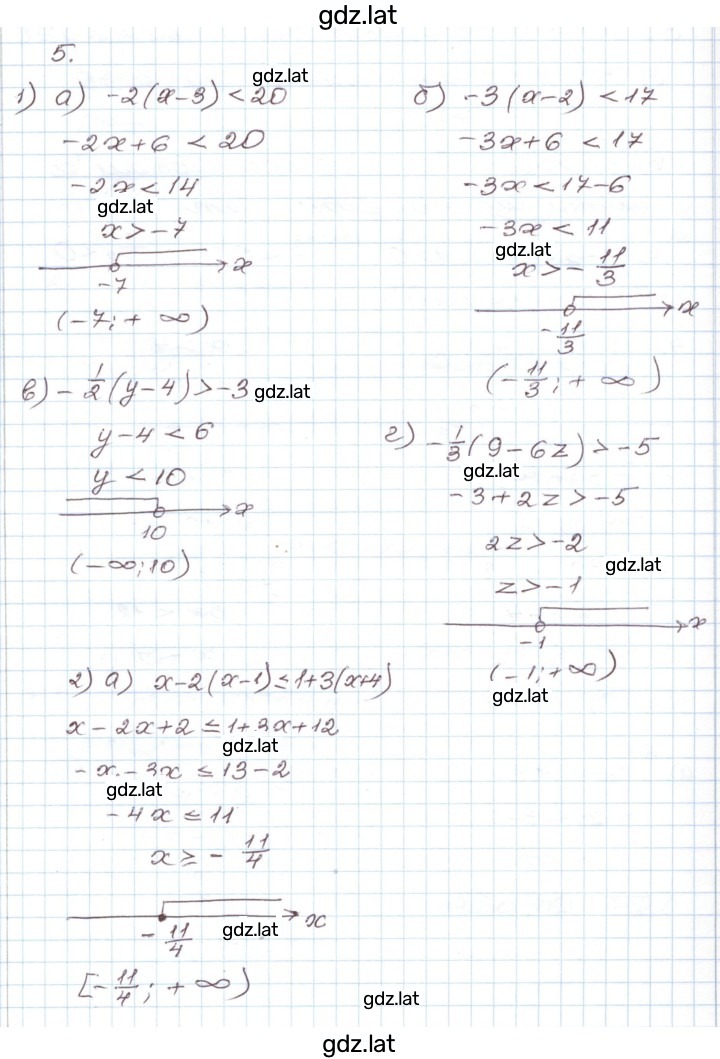 gdz.lat
5.
gdz.lat
1) а) -2(x-3)<20
-2x+6 < 20
-2x<14
gdz.lat
x>-7
x
-7
(-7; + ∞)
б) -3(x-2) <17
-3x+6 < 17
-3x<17-6
-3x < 11
gdz.lat
x>- 11/3
x
-11/3
(-11/3; + ∞)
в) -1/2(y-4)>-3 gdz.lat
y-4<6
y<10
x
10
(-∞;10)
г) -1/3(9-6z)>-5
gdz.lat
-3+2z>-5
2z>-2
gdz.lat
z>-1
x
-1
(-1;+∞)
gdz.lat
2) а) x-2(x-1)≤1+3(x+4)
x-2x+2 ≤1+3x+12
gdz.lat
-x-3x ≤13-2
gdz.lat
-4x ≤11
x≥ - 11/4
x
- 11/4
gdz.lat
[-11/4; +∞)
gdz.lat
gdz.lat